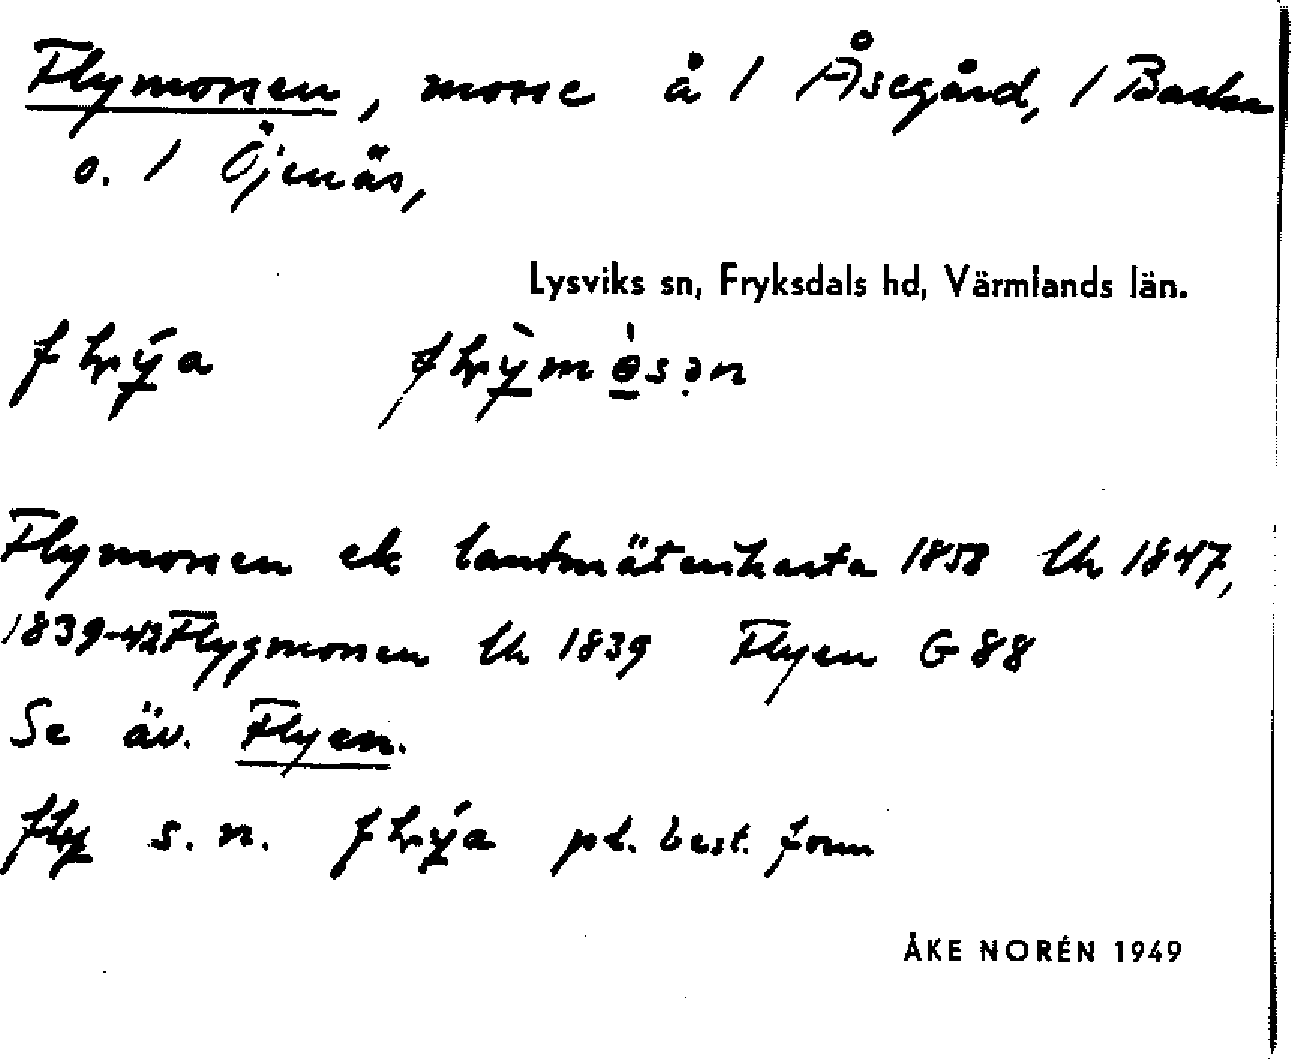 Flymossen, mosse å / Åsegård, / Backa
o. / Öjenäs,
Lysviks sn, Fryksdals hd, Värmlands län.
Flymossen ek landmäterikarta 1858 Uk 1847,
1839-42 Flygmossen Uk 1839 Flyen G 88
Se äv. Flyen.
fly s. n. pl. best. form
ÅKE NORÉN 1949